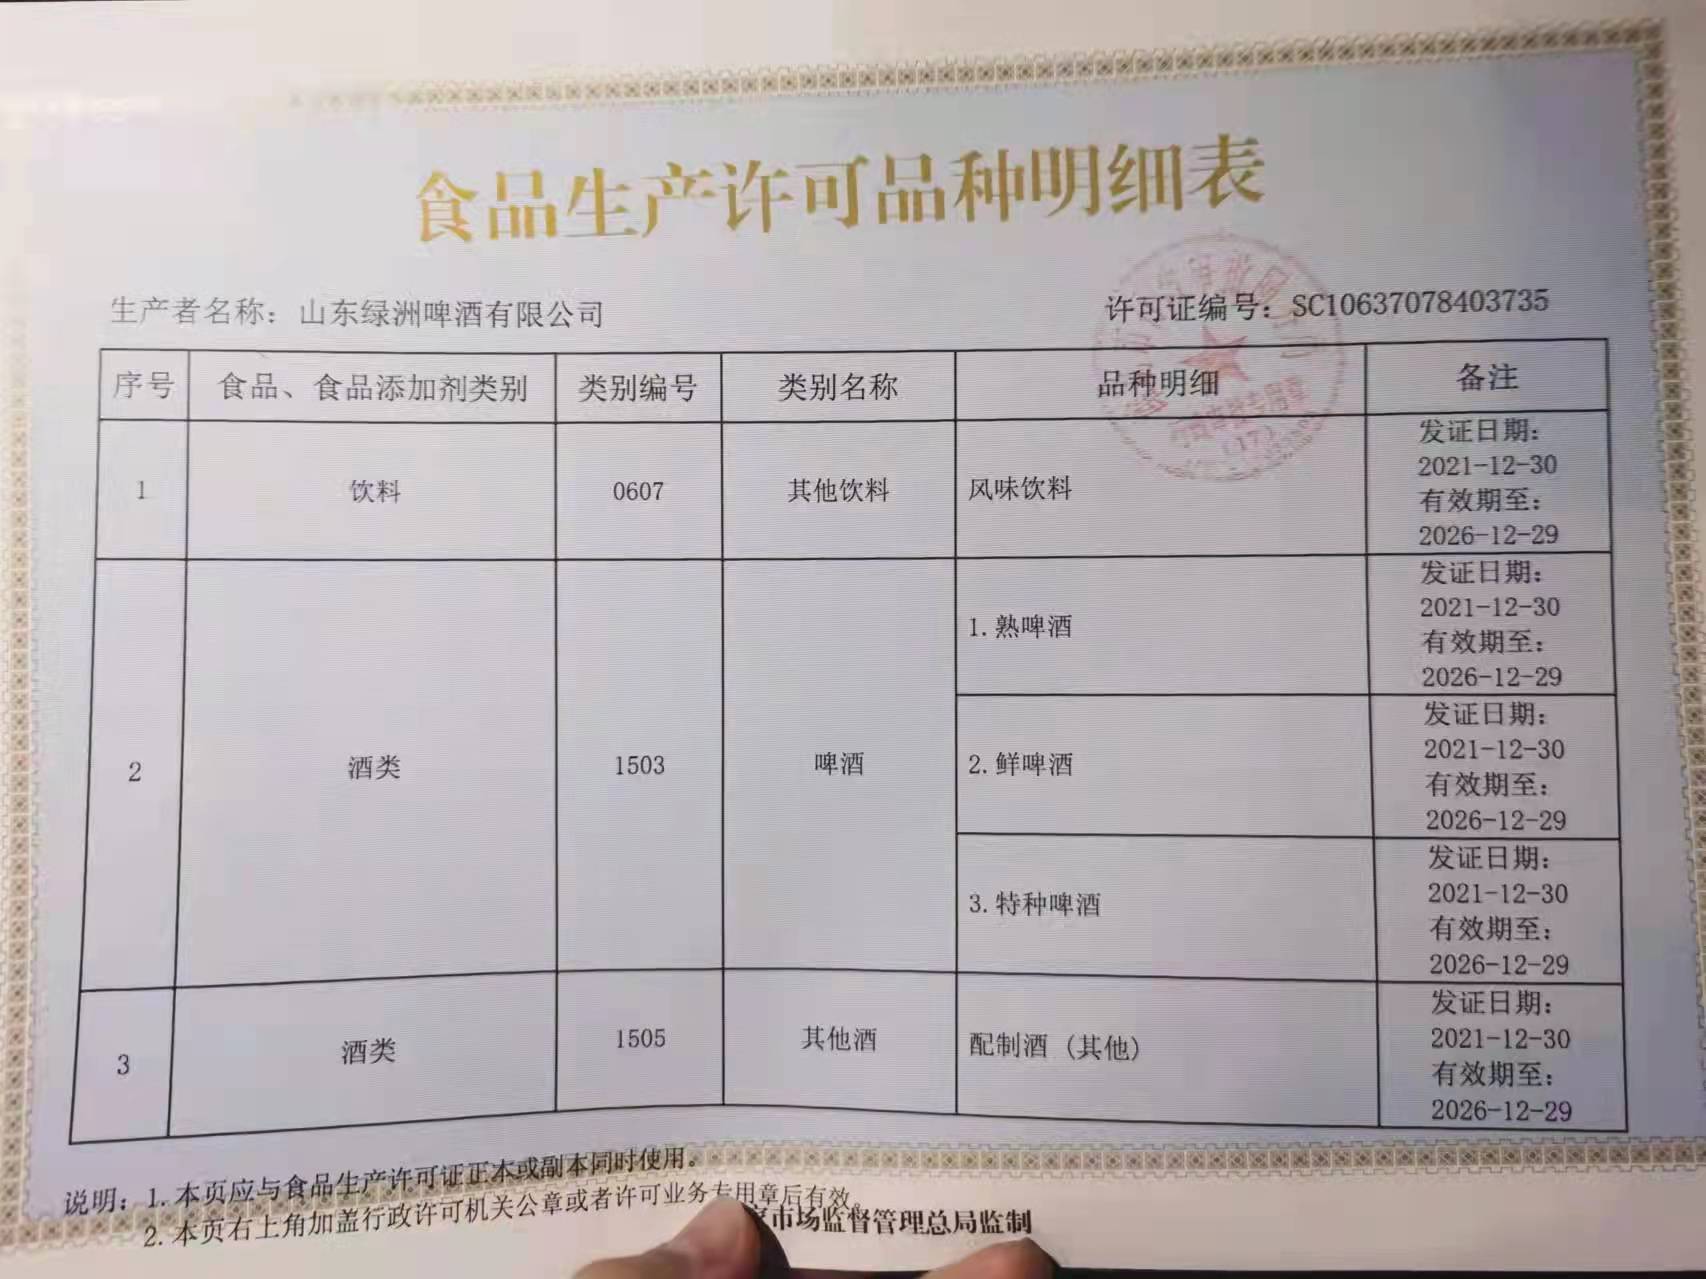 食品生产许可品种明细表
生产者名称：山东绿洲啤酒有限公司
许可证编号：SC10637078403735
序号 食品、食品添加剂类别 类别编号 类别名称 品种明细 备注
1 饮料 0607 其他饮料 风味饮料
发证日期：
2021-12-30
有效期至：
2026-12-29
2 酒类 1503 啤酒
1.熟啤酒
发证日期：
2021-12-30
有效期至：
2026-12-29
2.鲜啤酒
发证日期：
2021-12-30
有效期至：
2026-12-29
3.特种啤酒
发证日期：
2021-12-30
有效期至：
2026-12-29
3 酒类 1505 其他酒 配制酒（其他）
发证日期：
2021-12-30
有效期至：
2026-12-29
说明：1.本页应与食品生产许可证正本或副本同时使用。
2.本页右上角加盖行政许可机关公章或者许可业务专用章后有效。
市场监督管理总局监制